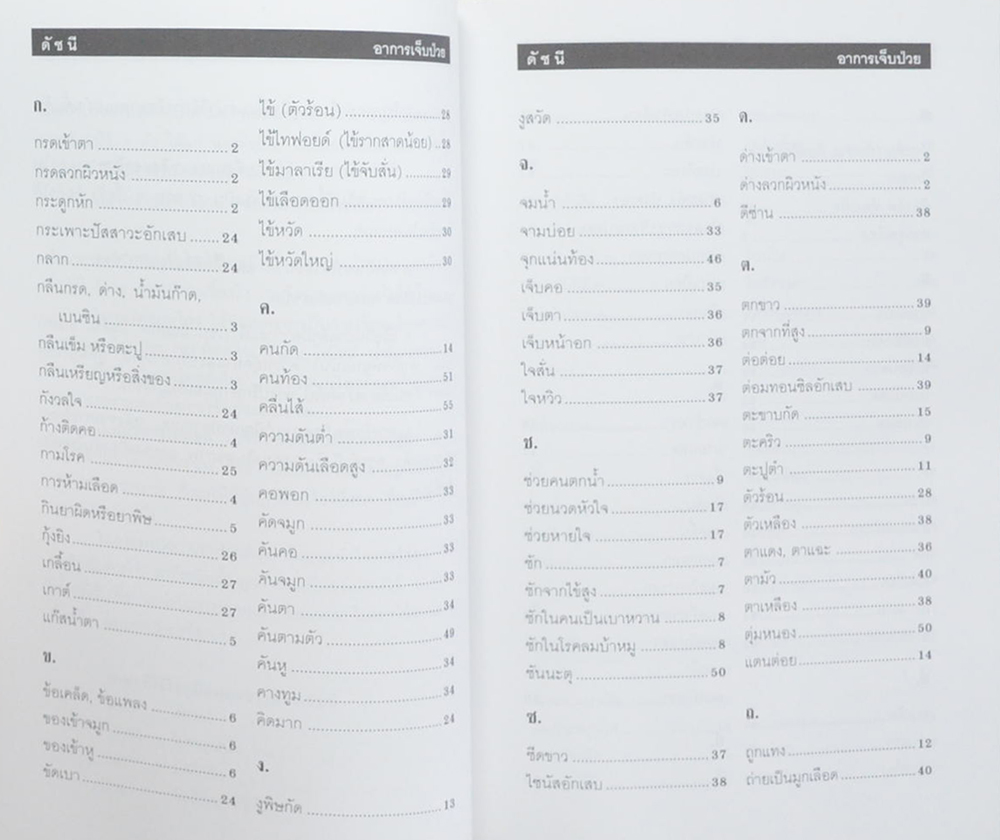 ดัชนี อาการเจ็บป่วย
ก.
กรดเข้าตา 2
กรดลวกผิวหนัง 2
กระดูกหัก 2
กระเพาะปัสสาวะอักเสบ 24
กลาก 24
กลืนกรด, ด่าง, น้ำมันก๊าด,
เบนซิน 3
กลืนเข็ม หรือตะปู 3
กลืนเหรียญหรือสิ่งของ 3
กังวลใจ 24
ก้างติดคอ 4
กามโรค 25
การห้ามเลือด 4
กินยาผิดหรือยาพิษ 5
กุ้งยิง 26
เกลื้อน 27
เกาต์ 27
แก๊สน้ำตา 5
ข.
ข้อเคล็ด, ข้อแพลง 6
ของเข้าจมูก 6
ของเข้าหู 6
ขัดเบา 24
ไข้ (ตัวร้อน) 28
ไข้ไทฟอยด์ (ไข้รากสาดน้อย) 28
ไข้มาลาเรีย (ไข้จับสั่น) 29
ไข้เลือดออก 29
ไข้หวัด 30
ไข้หวัดใหญ่ 30
ค.
คนกัด 14
คนท้อง 51
คลื่นไส้ 55
ความดันต่ำ 31
ความดันเลือดสูง 32
คอพอก 33
คัดจมูก 33
คันคอ 33
คันจมูก 33
คันตา 34
คันตามตัว 49
คันหู 34
คางทูม 34
คิดมาก 24
ง.
งูพิษกัด 13
ดัชนี อาการเจ็บป่วย
งูสวัด 35
จ.
จมน้ำ 6
จามบ่อย 33
จุกแน่นท้อง 46
เจ็บคอ 35
เจ็บตา 36
เจ็บหน้าอก 36
ใจสั่น 37
ใจหวิว 37
ช.
ช่วยคนตกน้ำ 9
ช่วยนวดหัวใจ 17
ช่วยหายใจ 17
ชัก 7
ชักจากไข้สูง 7
ชักในคนเป็นเบาหวาน 8
ชักในโรคลมบ้าหมู 8
ชันนะตุ 50
ซ.
ซีดขาว 37
ไซนัสอักเสบ 38
ด.
ด่างเข้าตา 2
ด่างลวกผิวหนัง 2
ดีซ่าน 38
ต.
ตกขาว 39
ตกจากที่สูง 9
ต่อต่อย 14
ต่อมทอนซิลอักเสบ 39
ตะขาบกัด 15
ตะคริว 9
ตะปูตำ 11
ตัวร้อน 28
ตัวเหลือง 38
ตาแดง, ตาแฉะ 36
ตามัว 40
ตาเหลือง 38
ตุ่มหนอง 50
แตนต่อย 14
ถ.
ถูกแทง 12
ถ่ายเป็นมูกเลือด 40